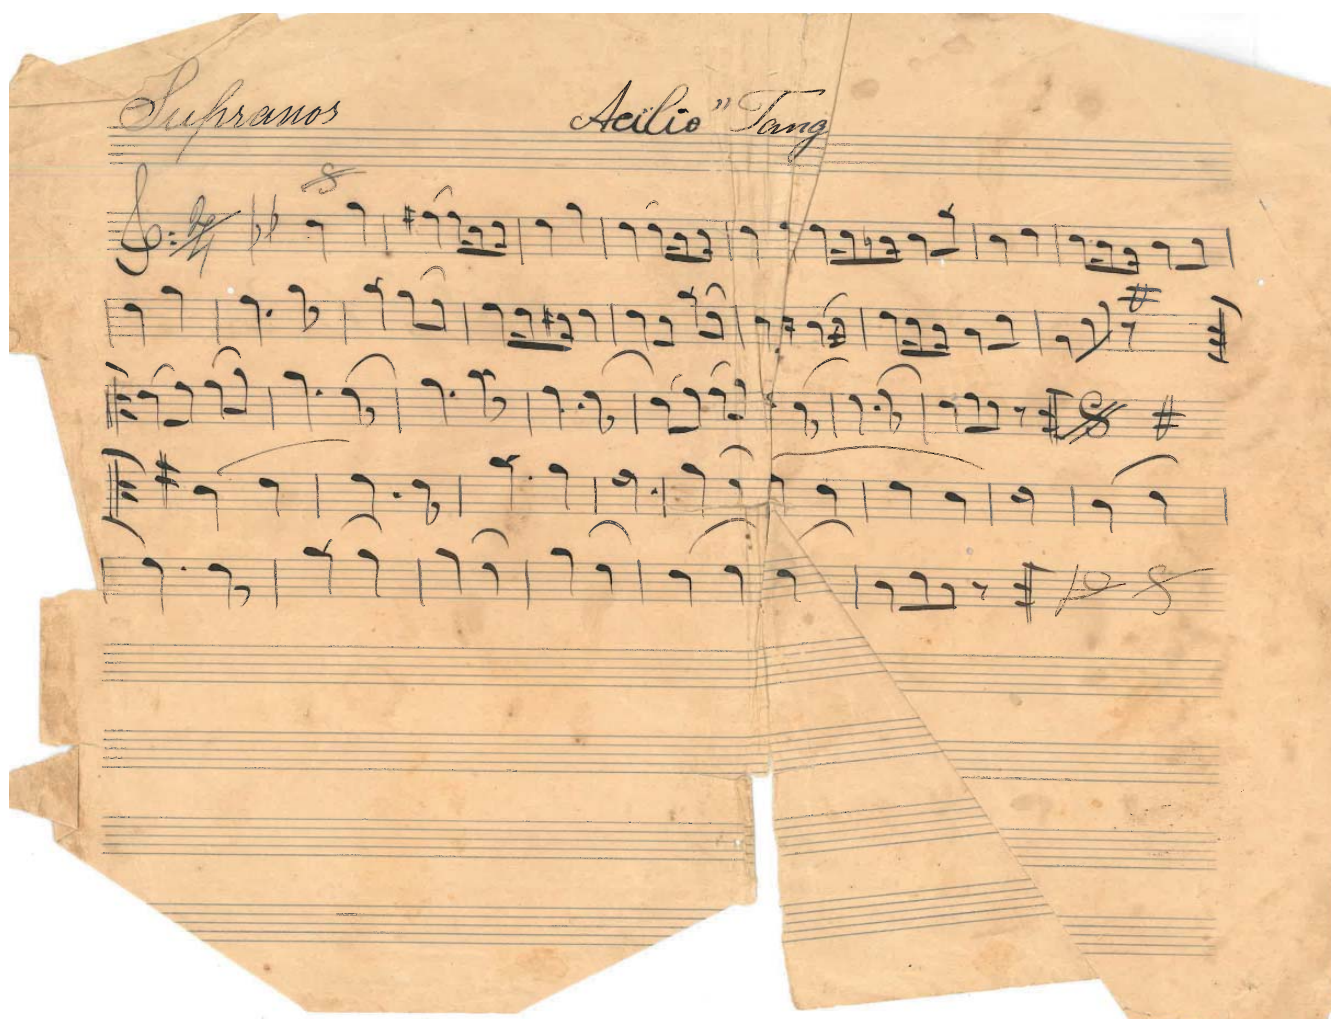 Sopranos Acilio" Tang
2/4